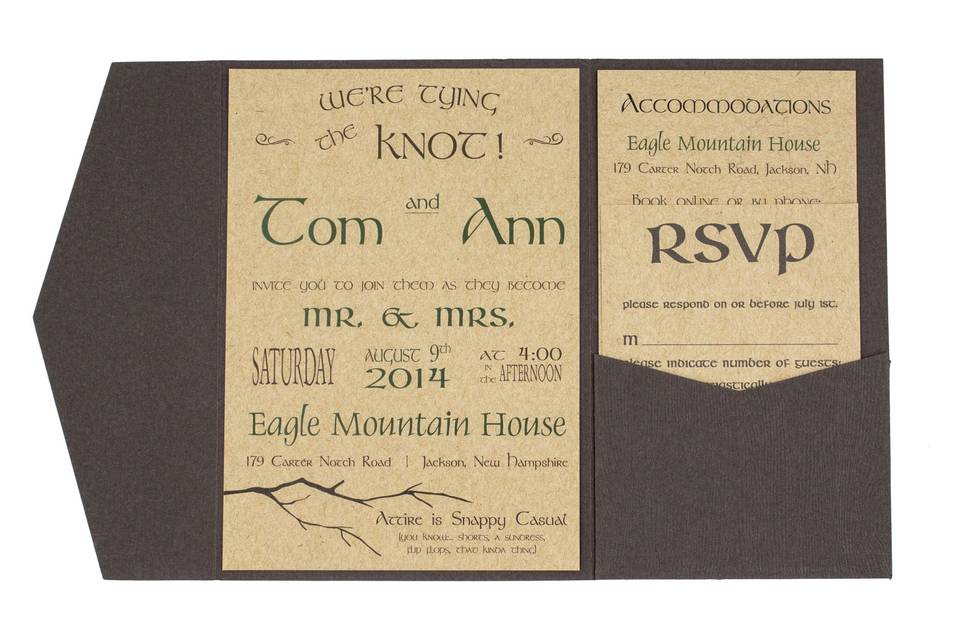 We're Tying
the Knot!
Tom and Ann
Invite you to join them as they become
mr. & mrs.
SATURDAY August 9th 2014 at 4:00 in the AFTERNOON
Eagle Mountain House
179 Carter Notch Road | Jackson, New Hampshire
Attire is Snappy Casual
(you know... shorts, a sundress,
flip flops, that kinda thing)
Accommodations
Eagle Mountain House
179 Carter Notch Road, Jackson, NH
Book online or by phone:
RSVP
please respond on or before July 1st.
m
please indicate number of guests: